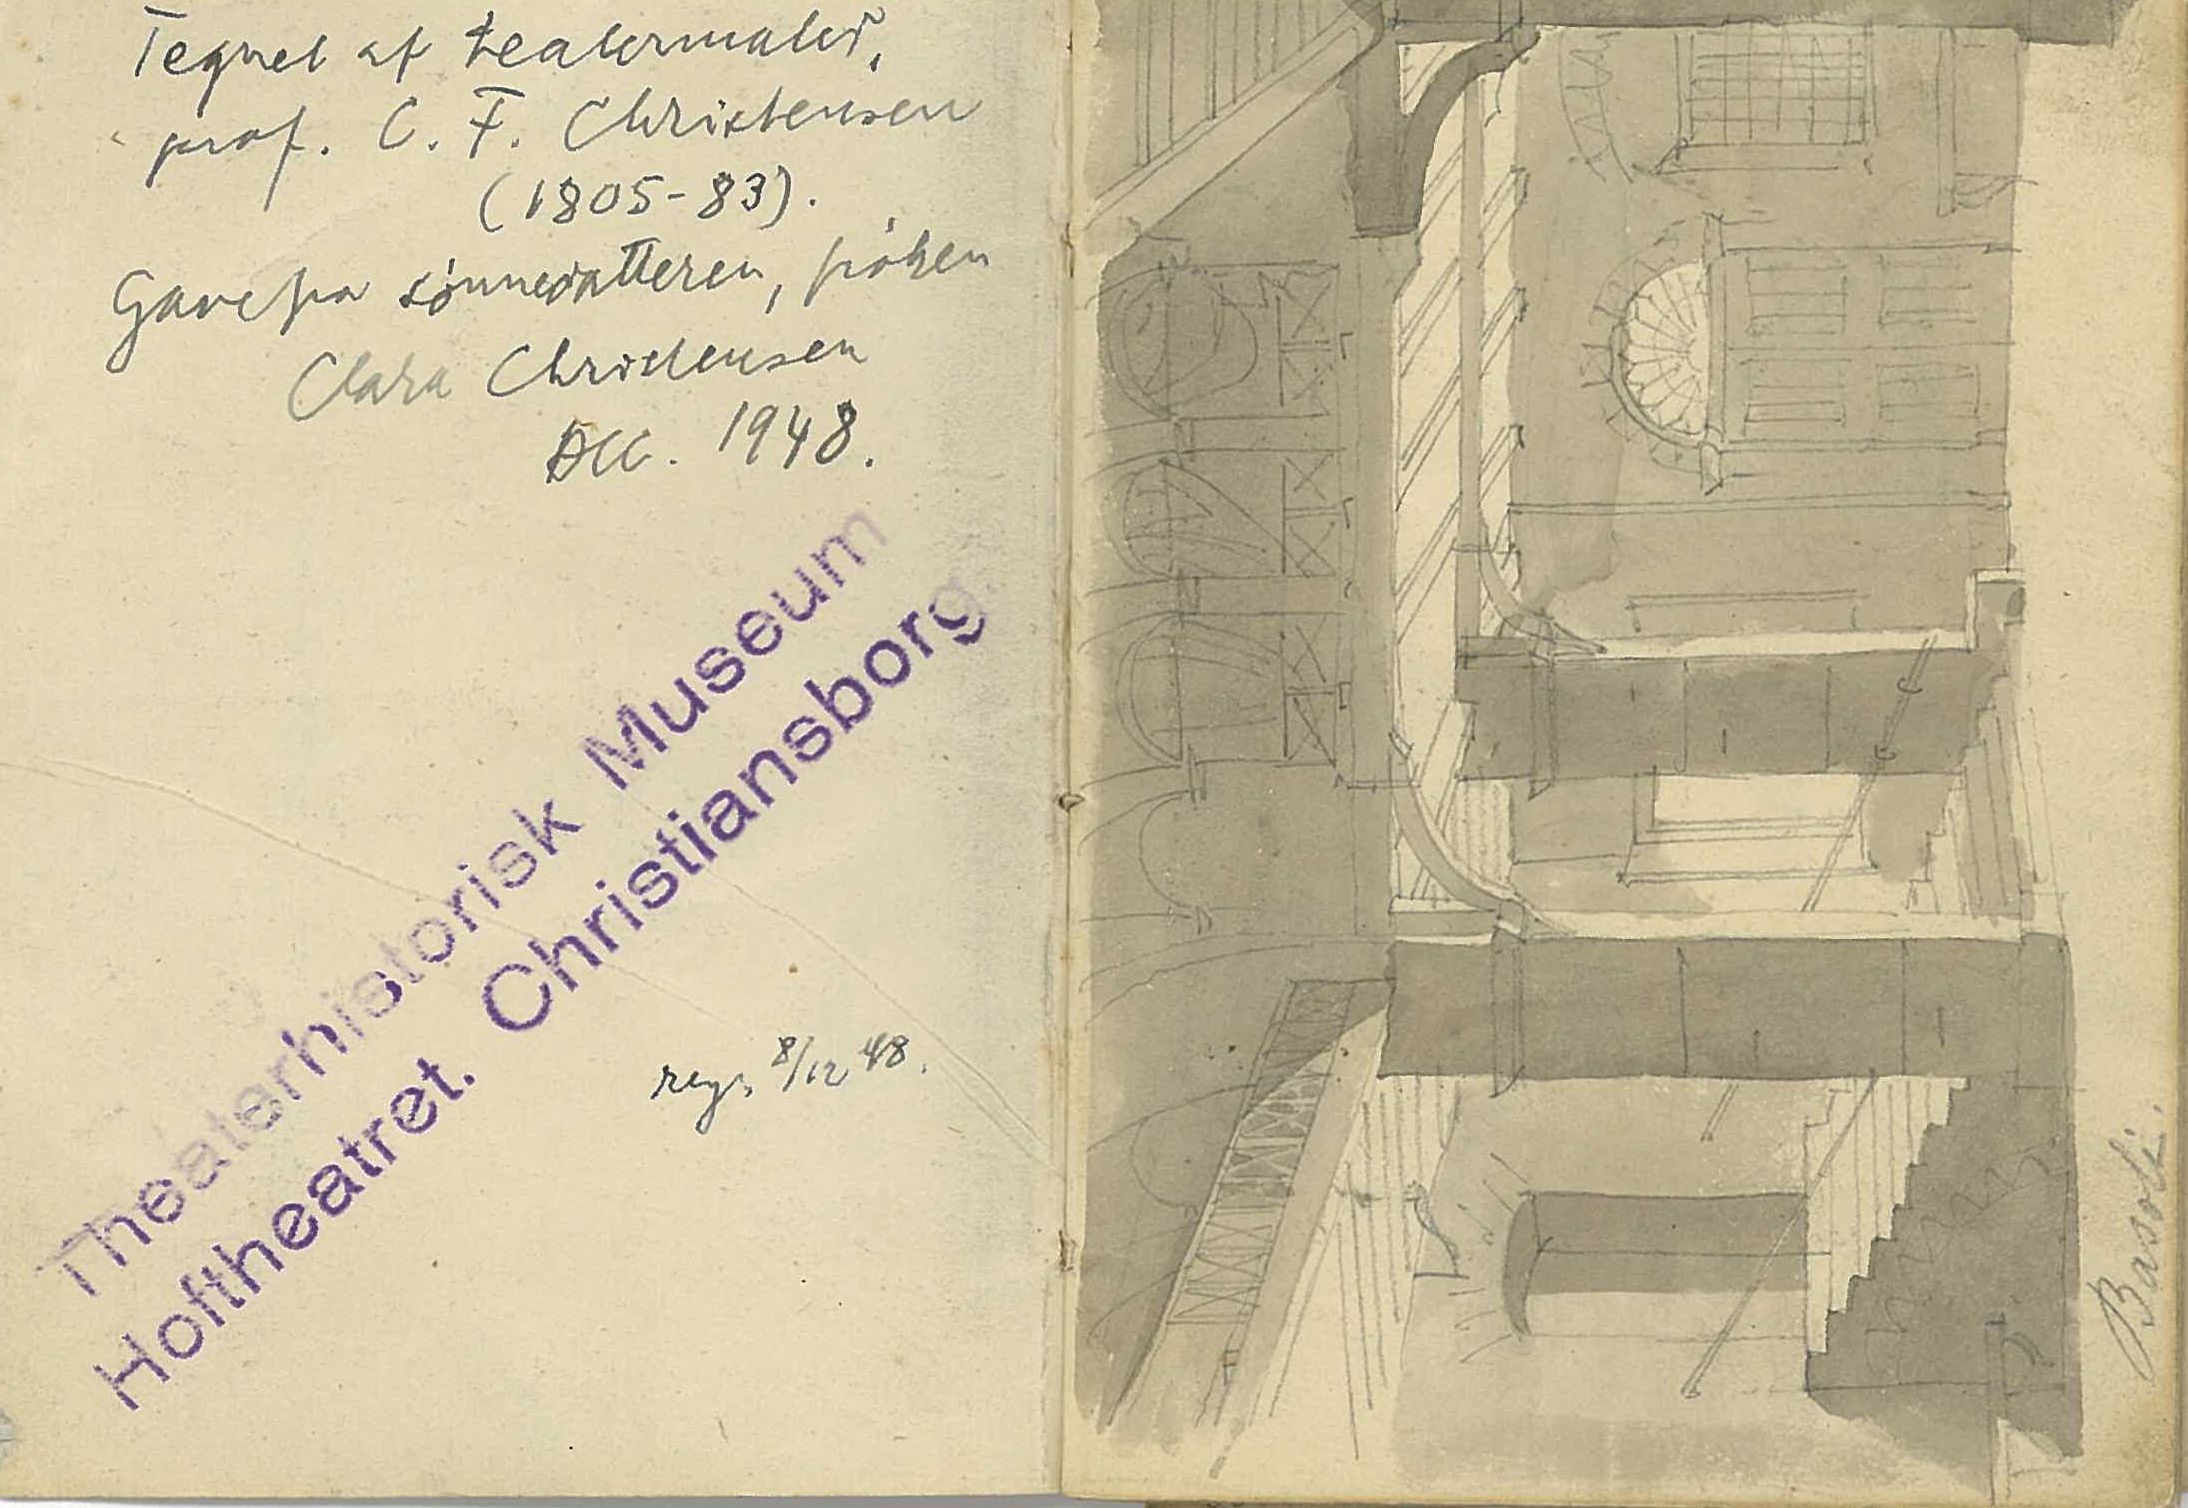 Tegnet af teatermaler,
prof. C. F. Christensen
(1805-83).
Gave fra sønnedatteren, frøken
Clara Christensen
Dec. 1948.
Theaterhistorisk Museum
Hoftheatret. Christiansborg.
reg. 8/12 48.
Basoli.